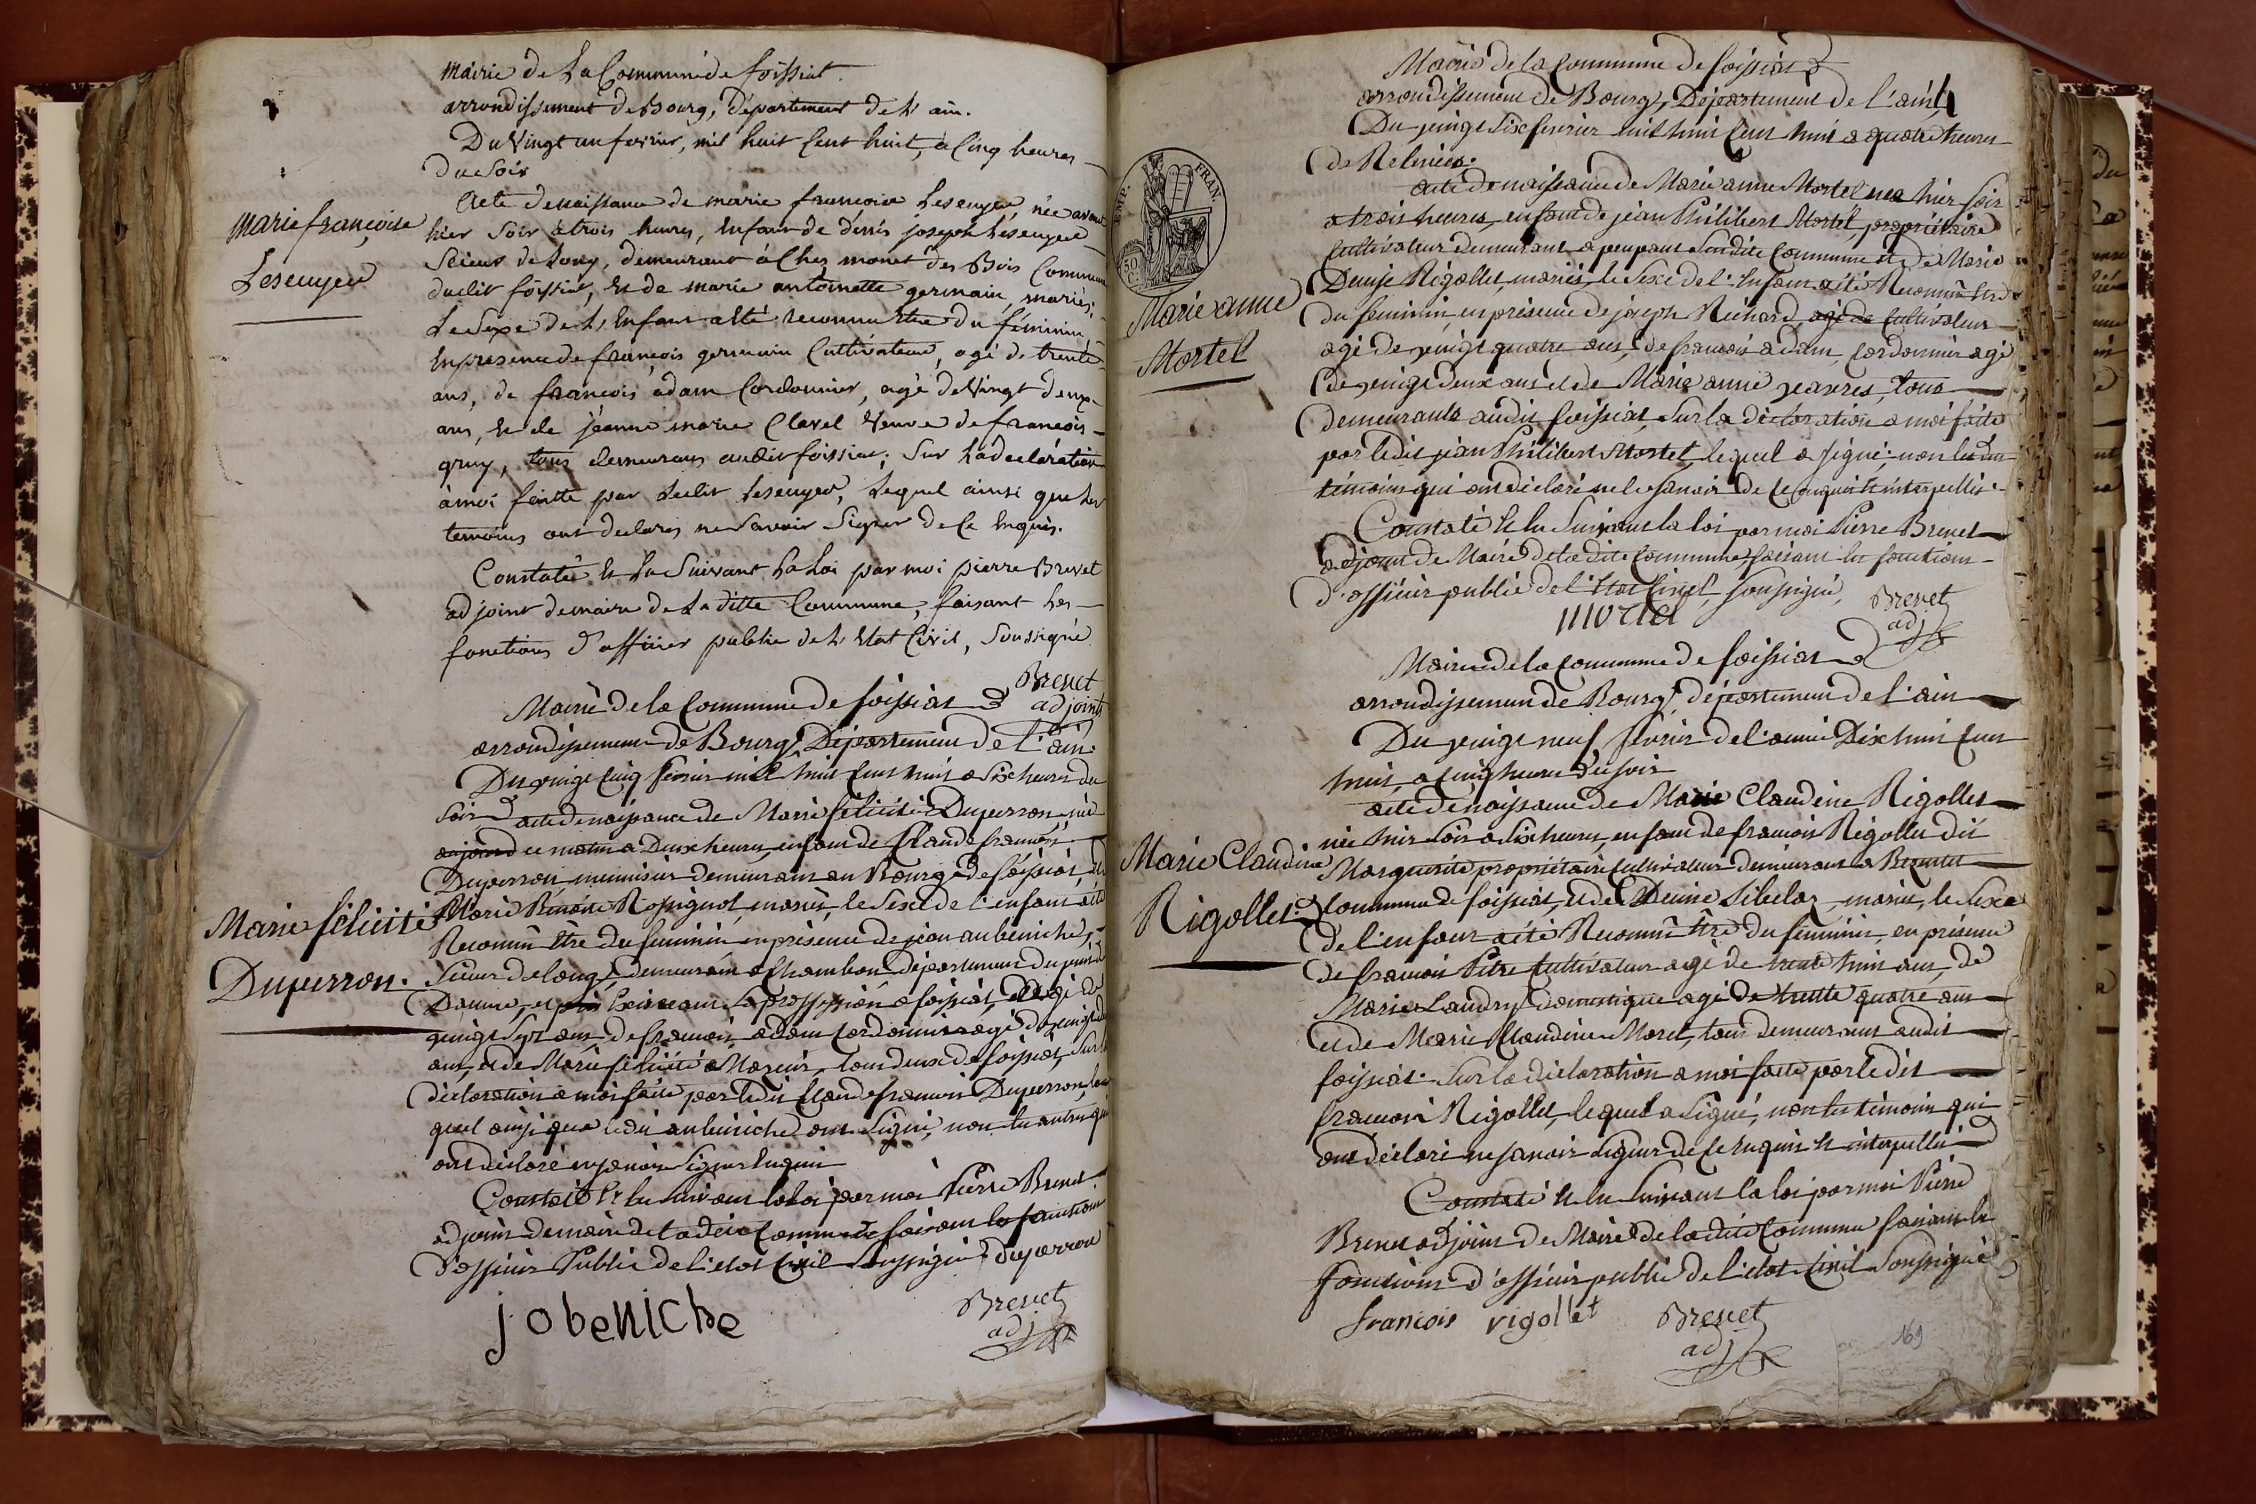 mairie de La Commune de foissiat.
arrondissement de Bourg, département de L'ain.
Du Vingt un fevrier, mil huit Cent huit, à Cinq heures
du Soir
Acte de naissance de marie francoise Lesenyeu née avant
marie françoise
Lesenyeu
hier Soir à trois heures, Enfant de denis joseph Lesenyeu
Scieur de Long, demeurant à Chez monet des Bois Commune
dudit foissiat, et de marie antoinette germain, mariés;
Le Sexe de L'Enfant a été reconnu Etre du féminin,
En présence de françois germain Cultivateur, agé de trente
ans, de francois adam Cordonnier, agé de Vingt deux
ans, et de jeanne marie Clavel Veuve de francois
gruy, tous demeurans audit foissiat; Sur La declaration
à moi faitte par Ledit Lesenyeu, Lequel ainsi que Les
temoins ont declarés ne Savoir Signer de Ce Enquis.
Constaté et Lu Suivant La Loi par moi pierre Brevet
adjoint de maire de La ditte Commune, faisant Les
fonctions d'officier public de L'Etat Civil, Soussigné
Brevet
adjoint
Mairie de la Commune de foissiat
arrondissement de Bourg, Département de l'ain
Du vingt cinq fevrier mil huit cent huit a Six heures du
Soir acte de naissance de Marie félicité Duperron, née
aujourd ce matin a Deux heures, enfant de Claude francois
Duperron, menuisier demeurant au Bourg de foissiat, et de
Marie félicité
Duperron.
Marie Rossignol, mariés, le Sexe de l'enfant a été
Reconnu Etre du feminin en présence de jean aubeniche,
Scieur de long, demeurant a Chambon département du puis de
Daume, et sa proffession a foissiat, agé de
vingt Sept ans, de francois adam Cordonnier agé de vingt deux
ans, et de Marie félicité tous deux de foissiat, Sur la
déclaration a moi faite par ledit Claude francois Duperron, le
quel ainsi que ledit aubeniche ont Signé, non les autres qui
ont déclaré ne savoir Signer Enquis
Constaté et lu Suivant la loi par moi Pierre Brevet
adjoint de maire de la dite Commune faisant les fonctions
d'officier Public de l'etat Civil Soussigné duperron
jobeniche
Brevet
adj
Mairie de la Commune de foissiat
arrondissement de Bourg, Département de l'ain
Du vingt Six fevrier mil huit cent huit a quatre heures
de Relevée.
EMP. FRAN.
50
acte de naissance de Marie anne Mortel née hier Soir
a trois heures, enfant de jean Philibert Mortel, propriétaire
Cultivateur demeurant a peupant Susdite Commune et de Marie
Marie anne
Mortel
Denise Rigollet, mariés, le Sexe de l'Enfant a été Reconnu Etre
du feminin, en présence de joseph Richard, agé de Cultivateur
agé de vingt quatre ans, de francois adam, Cordonnier agé
de vingt deux ans et de Marie anne jeavres, tous
demeurants audit foissiat, Sur la déclaration a moi faite
par ledit jean Philibert Mortel, lequel a signé; non les dits
témoins qui ont déclaré ne le Savoir de Ce enquis et interpellés.
Constaté et lu Suivant la loi par moi Pierre Brevet
adjoint de Maire de la dite Commune faisant les fonctions
d'officier public de l'Etat Civil, Soussigné,
mortel
Brevet
adj
Mairie de la Commune de foissiat
arrondissement de Bourg, département de l'ain
Du vingt neuf fevrier de l'année Dix huit Cent
huit, a Cinq heures du soir
acte de naissance de Marie Claudine Rigollet
née hier Soir a Six heures, enfant de francois Rigollet dit
Marie Claudine
Rigollet.
Marguerite propriétaire Cultivateur demeurant a
Commune de foissiat, et de Denise Sibelas, mariés, le Sexe
de l'enfant a été Reconnu Etre du féminin, en présence
de francois Pitre Cultivateur agé de trente huit ans, de
Marie Landry domestique agé de trente quatre ans
et de Marie Claudine Morel, tous demeurans audit
foissiat. Sur la déclaration a moi faite par ledit
francois Rigollet, lequel a Signé, non les témoins qui
ont déclaré ne savoir signer de Ce Enquis et interpellé
Constaté et lu Suivant la loi par moi Pierre
Brevet adjoint de Maire de la dite Commune faisant les
fonctions d'officier public de l'état Civil Soussigné
francois rigollet
Brevet
adj
169